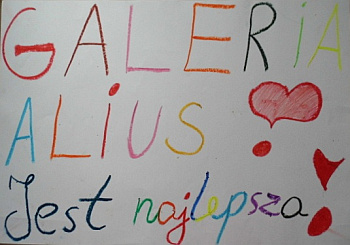 GALERIA
ALiUS
Jest najlepsza!